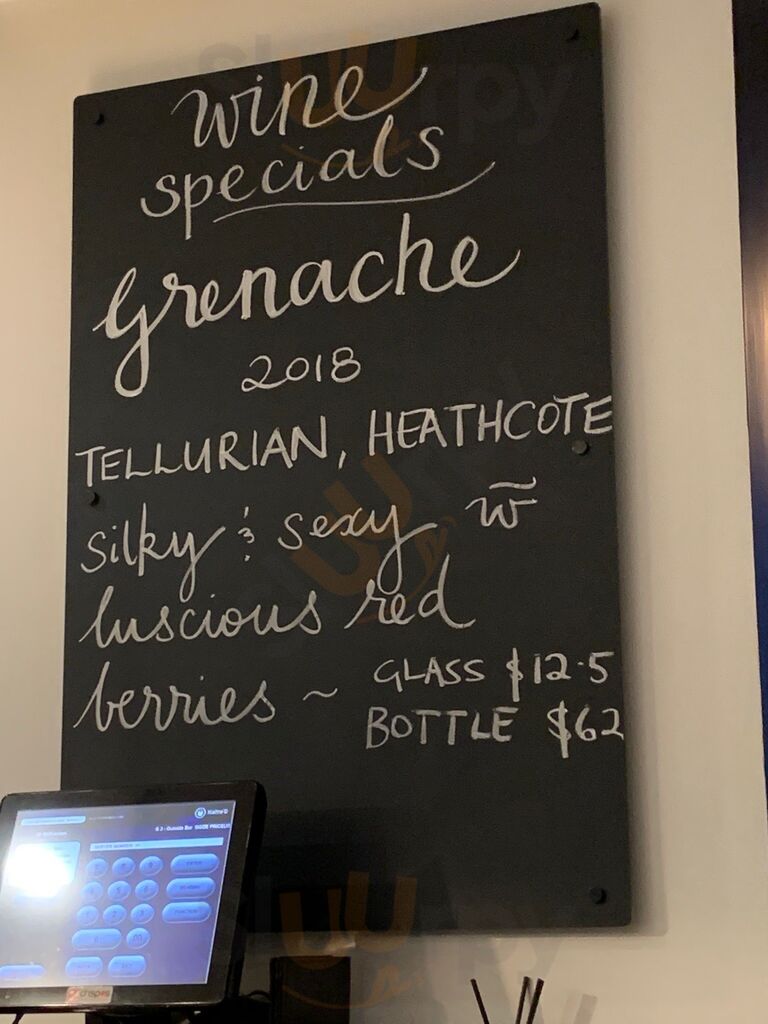 wine
specials
Grenache
2018
TELLURIAN, HEATHCOTE
silky & sexy w̃
luscious red
berries ~ GLASS $12.5
BOTTLE $62